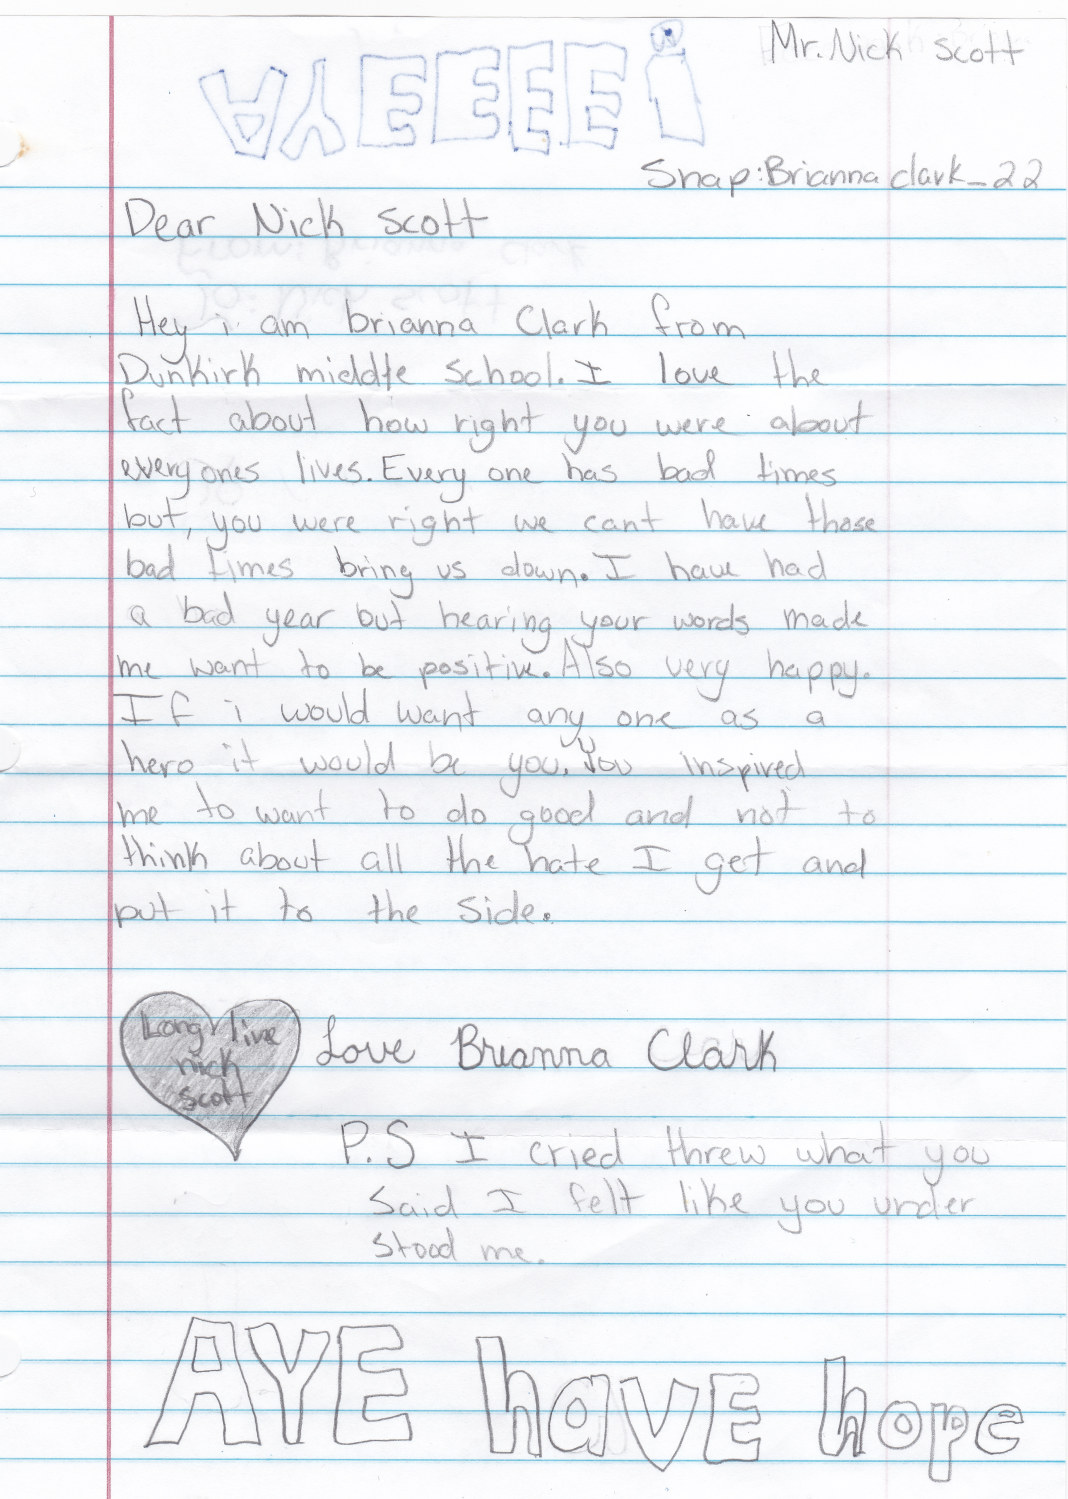 Mr. Nick scott
AYEEEE!
Snap: Brianna clark_22
Dear Nick scott
Hey i am brianna Clark from
Dunkirk middle school. I love the
fact about how right you were about
every ones lives. Every one has bad times
but, you were right we cant have those
bad times bring us down. I have had
a bad year but hearing your words made
me want to be positive. Also very happy.
If i would want any one as a
hero it would be you. You inspired
me to want to do good and not to
think about all the hate I get and
put it to the side.
Long live
nick
scott
Love Brianna Clark
P.S I cried threw what you
said I felt like you under
stood me.
AYE have hope